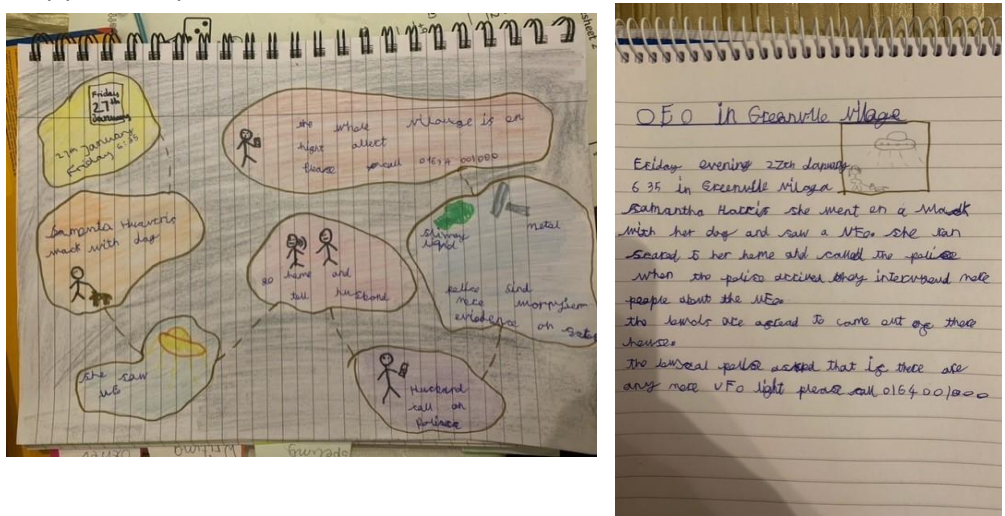 Friday
27th
January
27th January
Friday 6:35
the whole village is on
hight allert
Please call 01642 001000
Samanta
walk with dog
slimey
liqid
metal
go home and
tell husband
police find
more
evidence on
she saw
Husband
call on
Police
UFO in Greenville Vilage
Friday evening 27th January
6 35 in Greenville vilage
Samantha Harris she went on a walk
with her dog and saw a UFO. she ran
scared to her home and called the police
when the police arrived they more
people about the UFO.
the are to come out there
house.
the police asked that if there are
any more UFO light please call 0164 001000